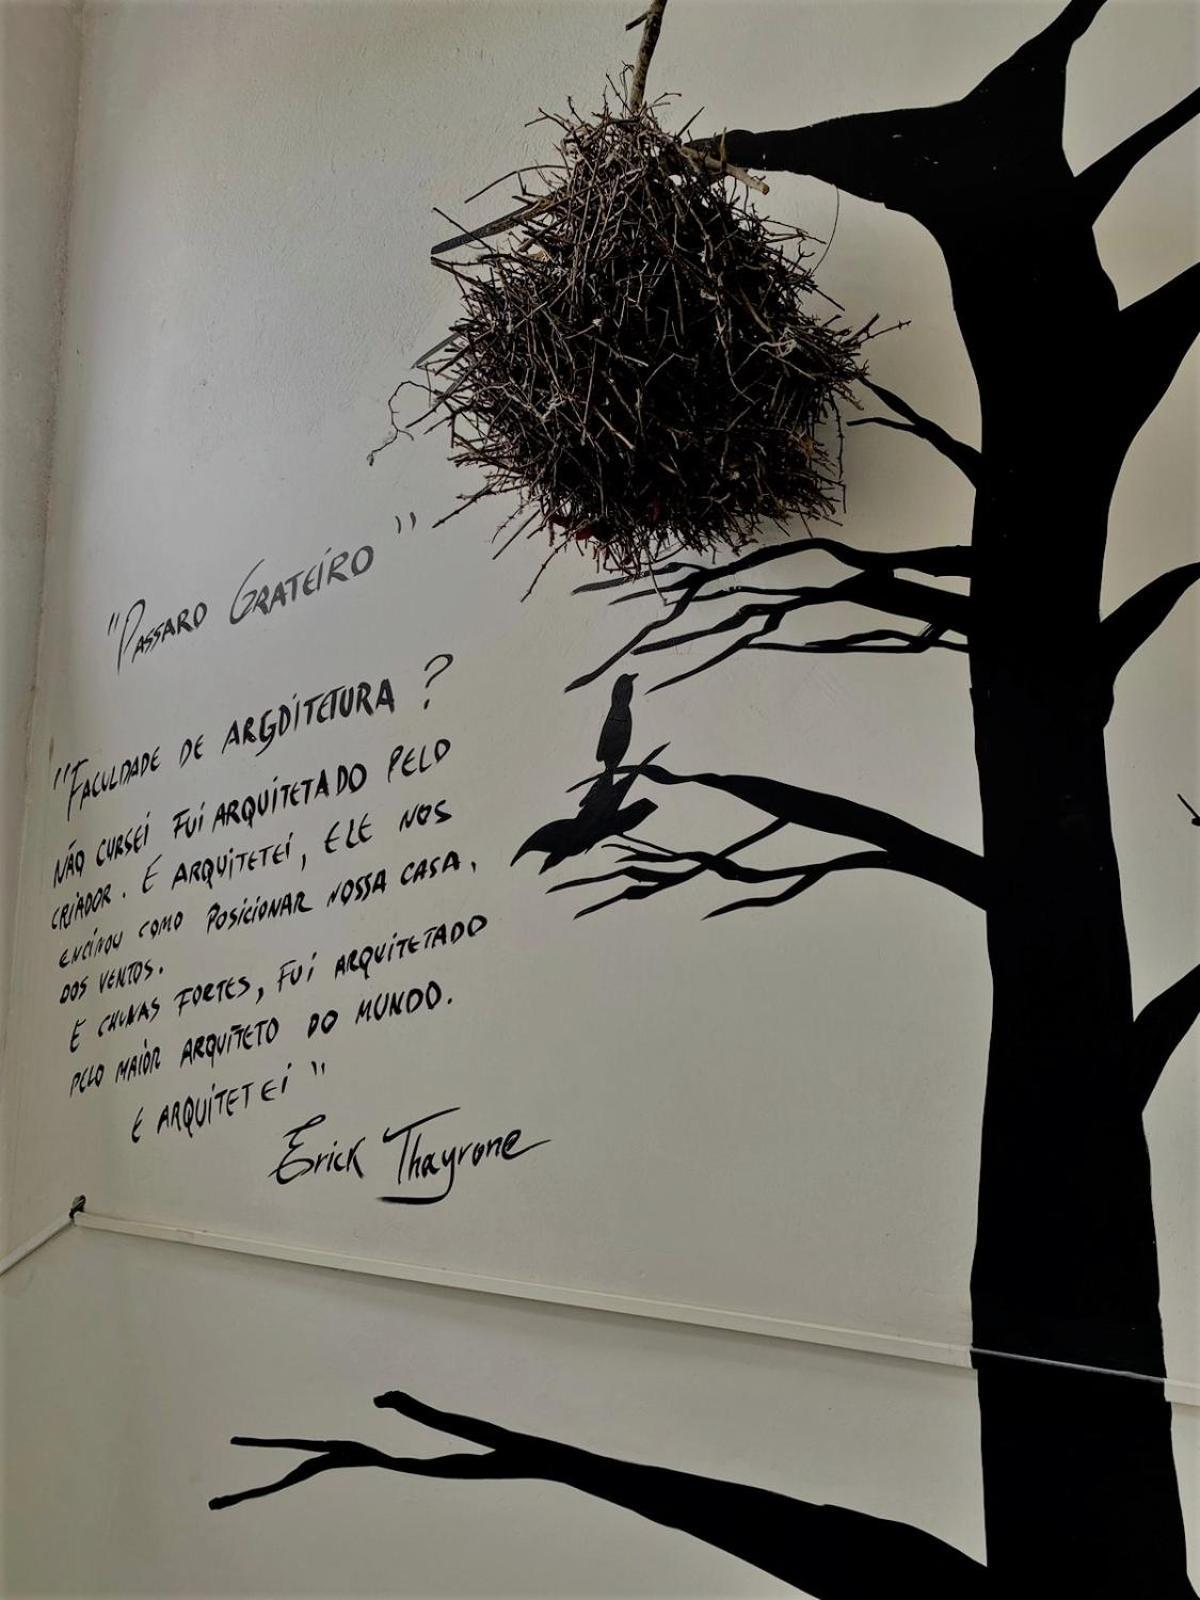 "PASSARO GRATEIRO"
"FACULDADE DE ARQDITETURA ?
NÃO CURSEI FUI ARQUITETADO PELO
CRIADOR. E ARQUITETEI, ELE NOS
ENCINOU COMO POSICIONAR NOSSA CASA,
DOS VENTOS.
E CHUVAS FORTES, FUI ARQUITETADO
PELO MAIOR ARQUITETO DO MUNDO.
E ARQUITETEI"
Erick Thayrone